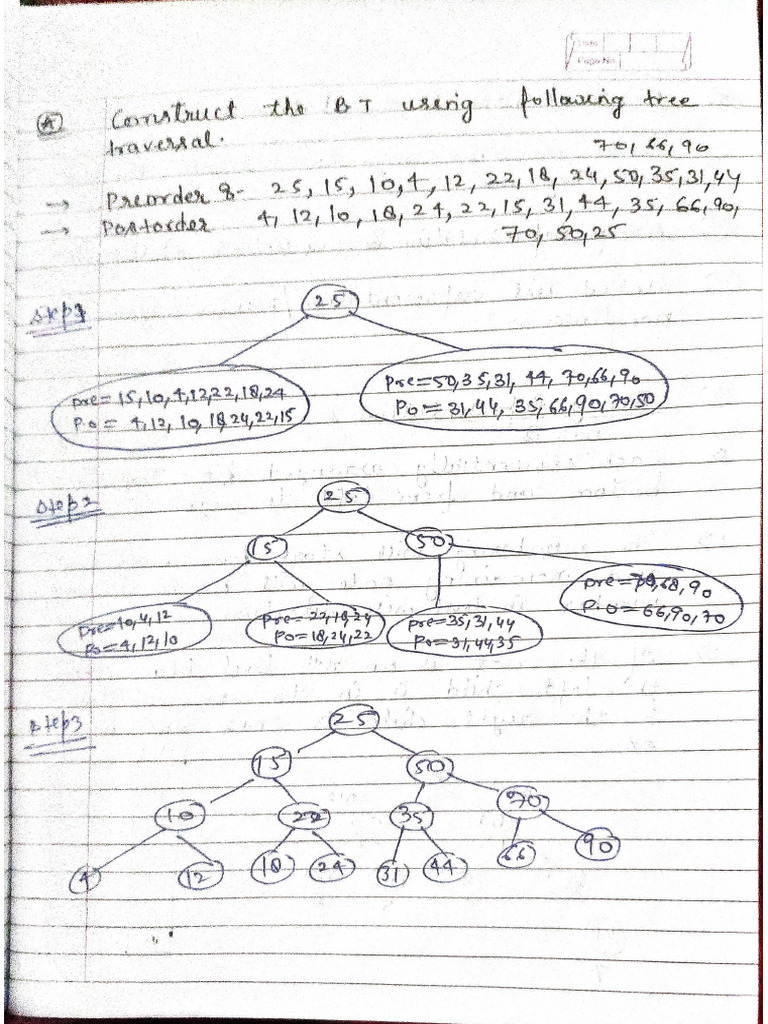 Date
Page No.
A Construct the BT using following tree
traversal.
70, 66, 90
→ Preorder :- 25, 15, 10, 4, 12, 22, 18, 24, 50, 35, 31, 44
→ Postorder 4, 12, 10, 18, 24, 22, 15, 31, 44, 35, 66, 90,
70, 50, 25
Step1
25
Pre=15,10,4,12,22,18,24
P.o = 4,12, 10, 18,24,22,15
Pre=50,35,31, 44, 70,66,90
Po=31,44, 35,66,90,70,50
Step2
25
15 50
Pre=10,4,12
Po=4,12,10
Pre=22,18,24
Po=18,24,22
Pre=35,31,44
Po=31,44,35
Pre=70,68,90
P.o=66,90,70
Step3
25
15 50
10 22 35 70
4 12 18 24 31 44 66 90